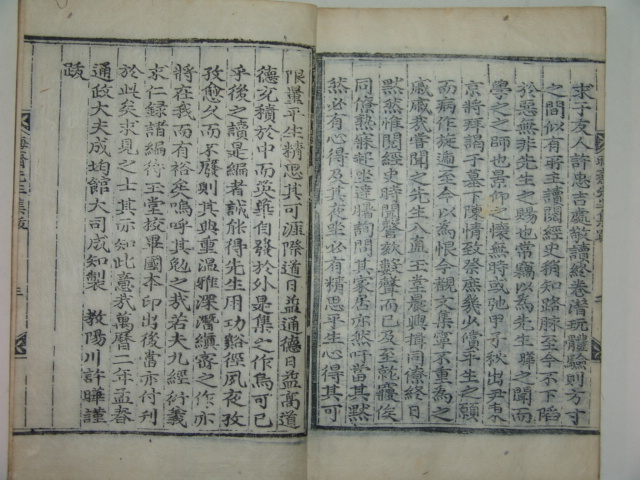 求于友人許忠吉處敬讀終卷潛玩體驗則方寸
之間似有所主讀閱經史稍知路脉至今不下陷
於惡無非先生之賜也常竊以爲先生曄之聞而
學之之師也景仰之懷無時或弛甲子秋出尹東
京將拜謁于墓下陳情致祭庶幾少償平生之願
而病作旋遞至今以爲恨今觀文集寧不重爲之
戚戚哉昔聞之先生入直玉堂晨興揖同僚終日
默然惟閱經史時聞謦欬數聲而已及至託寢俟
同僚熟寐起坐達曙詢問其家居亦然吁當其默
然必有心得及其夜坐必有精思平生心得其可
限量平生精思其可涯際道日益通德日益高道
德充積於中而英華自發於外是集之作烏可已
乎後之讀是編者誠能得先生用功谿徑夙夜孜
孜愈久而不廢則其典重溫雅深潛縝密之作亦
將在我而有裕矣嗚呼其勉之哉若夫九經衍義
求仁録諸編待玉堂校畢國本印出後當亦付刊
於此矣求見之士其亦知此意哉萬曆二年孟春
通政大夫成均館大司成知製 教陽川許曄謹
跋